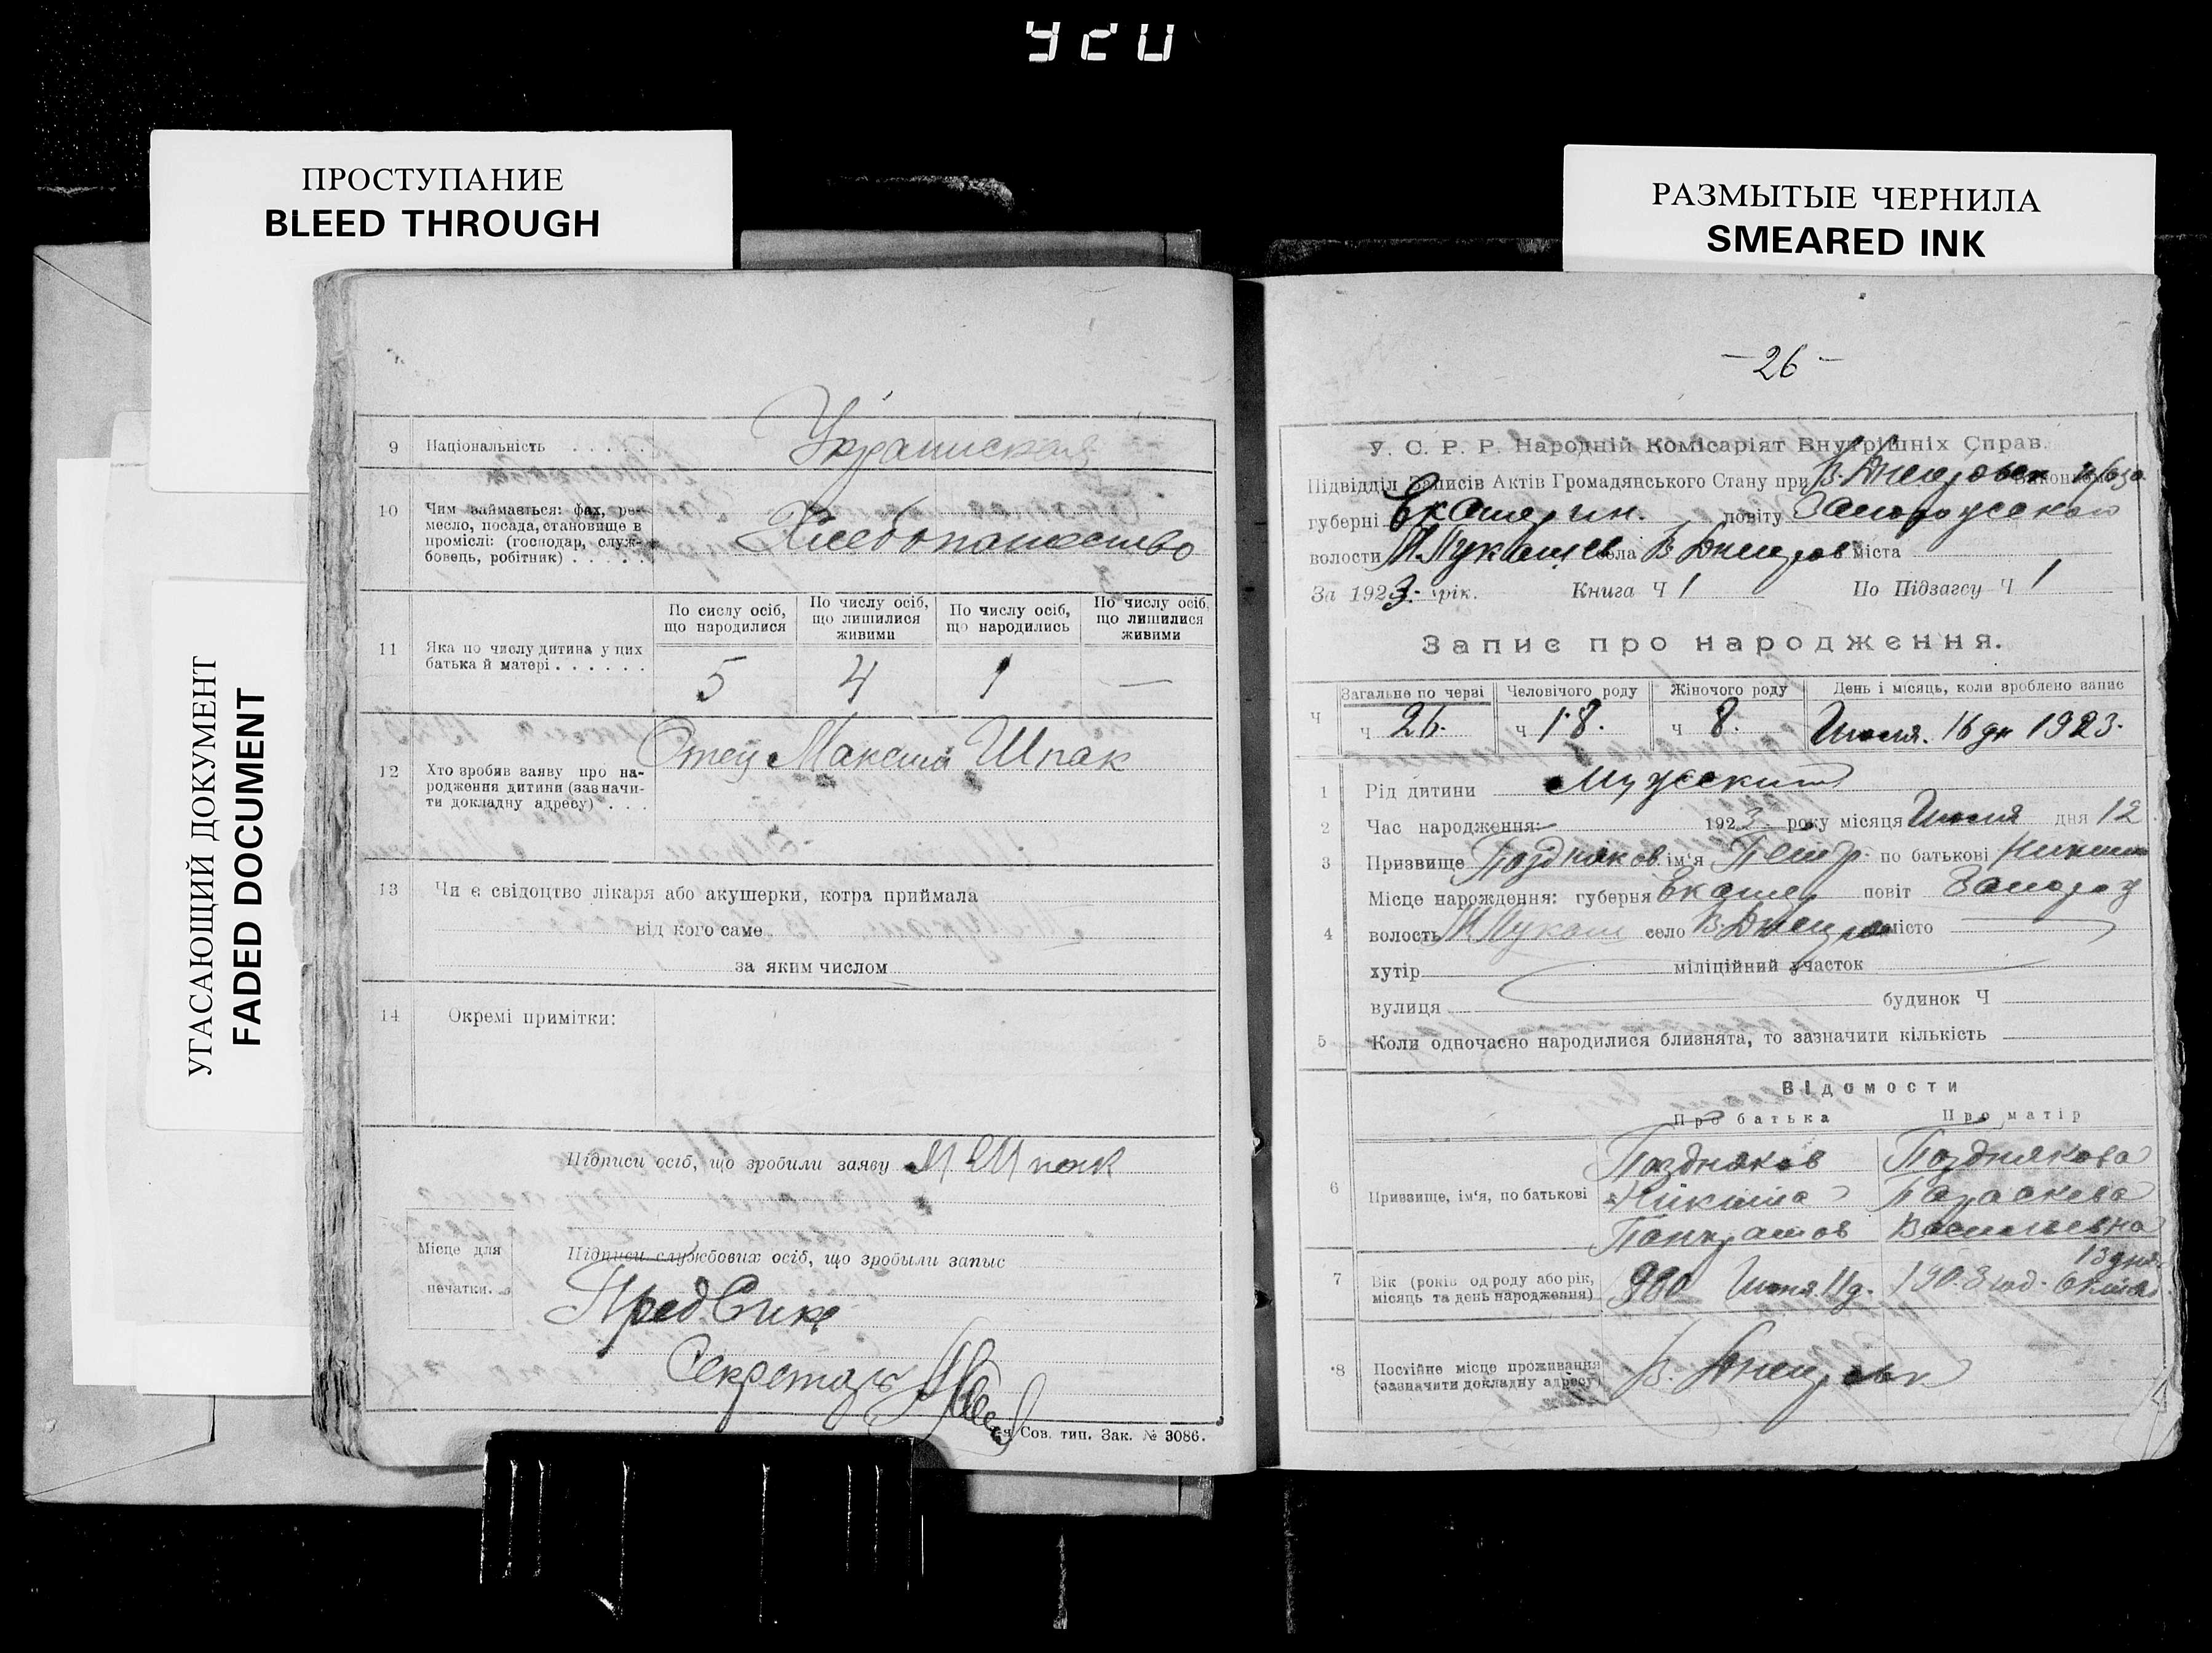 У20
ПРОСТУПАНИЕ
BLEED THROUGH
РАЗМЫТЫЕ ЧЕРНИЛА
SMEARED INK
УГАСАЮЩИЙ ДОКУМЕНТ
FADED DOCUMENT
9 Національність Украинская
10 Чим займається: фах, ре-
месло, посада, становище в
проміслі: (господар, служ-
бовець, робітник) Хлебопашество
11 Яка по числу дитина у цих
батька й матері
По сислу осіб, що народилися
По числу осіб, що лишилися живими
По числу осіб, що народились
По числу осіб, що лишилися живими
5 4 1 —
12 Хто зробив заяву про на-
родження дитини (зазначи-
ти докладну адресу)
Отец Максим Шпак
13 Чи є свідоцтво лікаря або акушерки, котра приймала
від кого саме
за яким числом
14 Окремі примітки:
Підписи осіб, що зробили заяву М Шпак
Місце для
печатки.
Підписи службових осіб, що зробыли запыс
Секретарь
Сов. тип. Зак. № 3086.
— 26 —
У. С. Р. Р. Народній Комісаріят Внутрішніх Справ.
Підвідділ Записів Актів Громадянського Стану при В. Днепровск
губерні Екатерин. повіту Запорожского
волости села В Днепров міста
За 1923 рік. Книга Ч 1 По Підзагсу Ч 1
Запис про народження.
Загальне по черзі Человічого роду Жіночого роду День і місяць, коли зроблено запис
Ч ч 26. ч 18. ч 8. 16 дн 1923.
1 Рід дитини Мужский
2 Час народження: 1923 року місяця дня 12
3 Призвище Поздняков ім'я Петр. по батькові Никит
4 Місце нарождення: губерня Екатер повіт Запорож
волость село В. Днепров місто
хутір міліційний участок
вулиця будинок Ч
5 Коли одночасно народилися близнята, то зазначити кількість
Відомости
Про батька Про матір
6 Призвище, ім'я, по батькові
Поздняков Позднякова
Никита Параскева
Панкратов Васильевна
7 Вік (років од роду або рік,
місяць та день народження)
11 д. 1903 год. 13 дня
8 Постійне місце проживання
(зазначити докладну адресу)
В. Днепровк